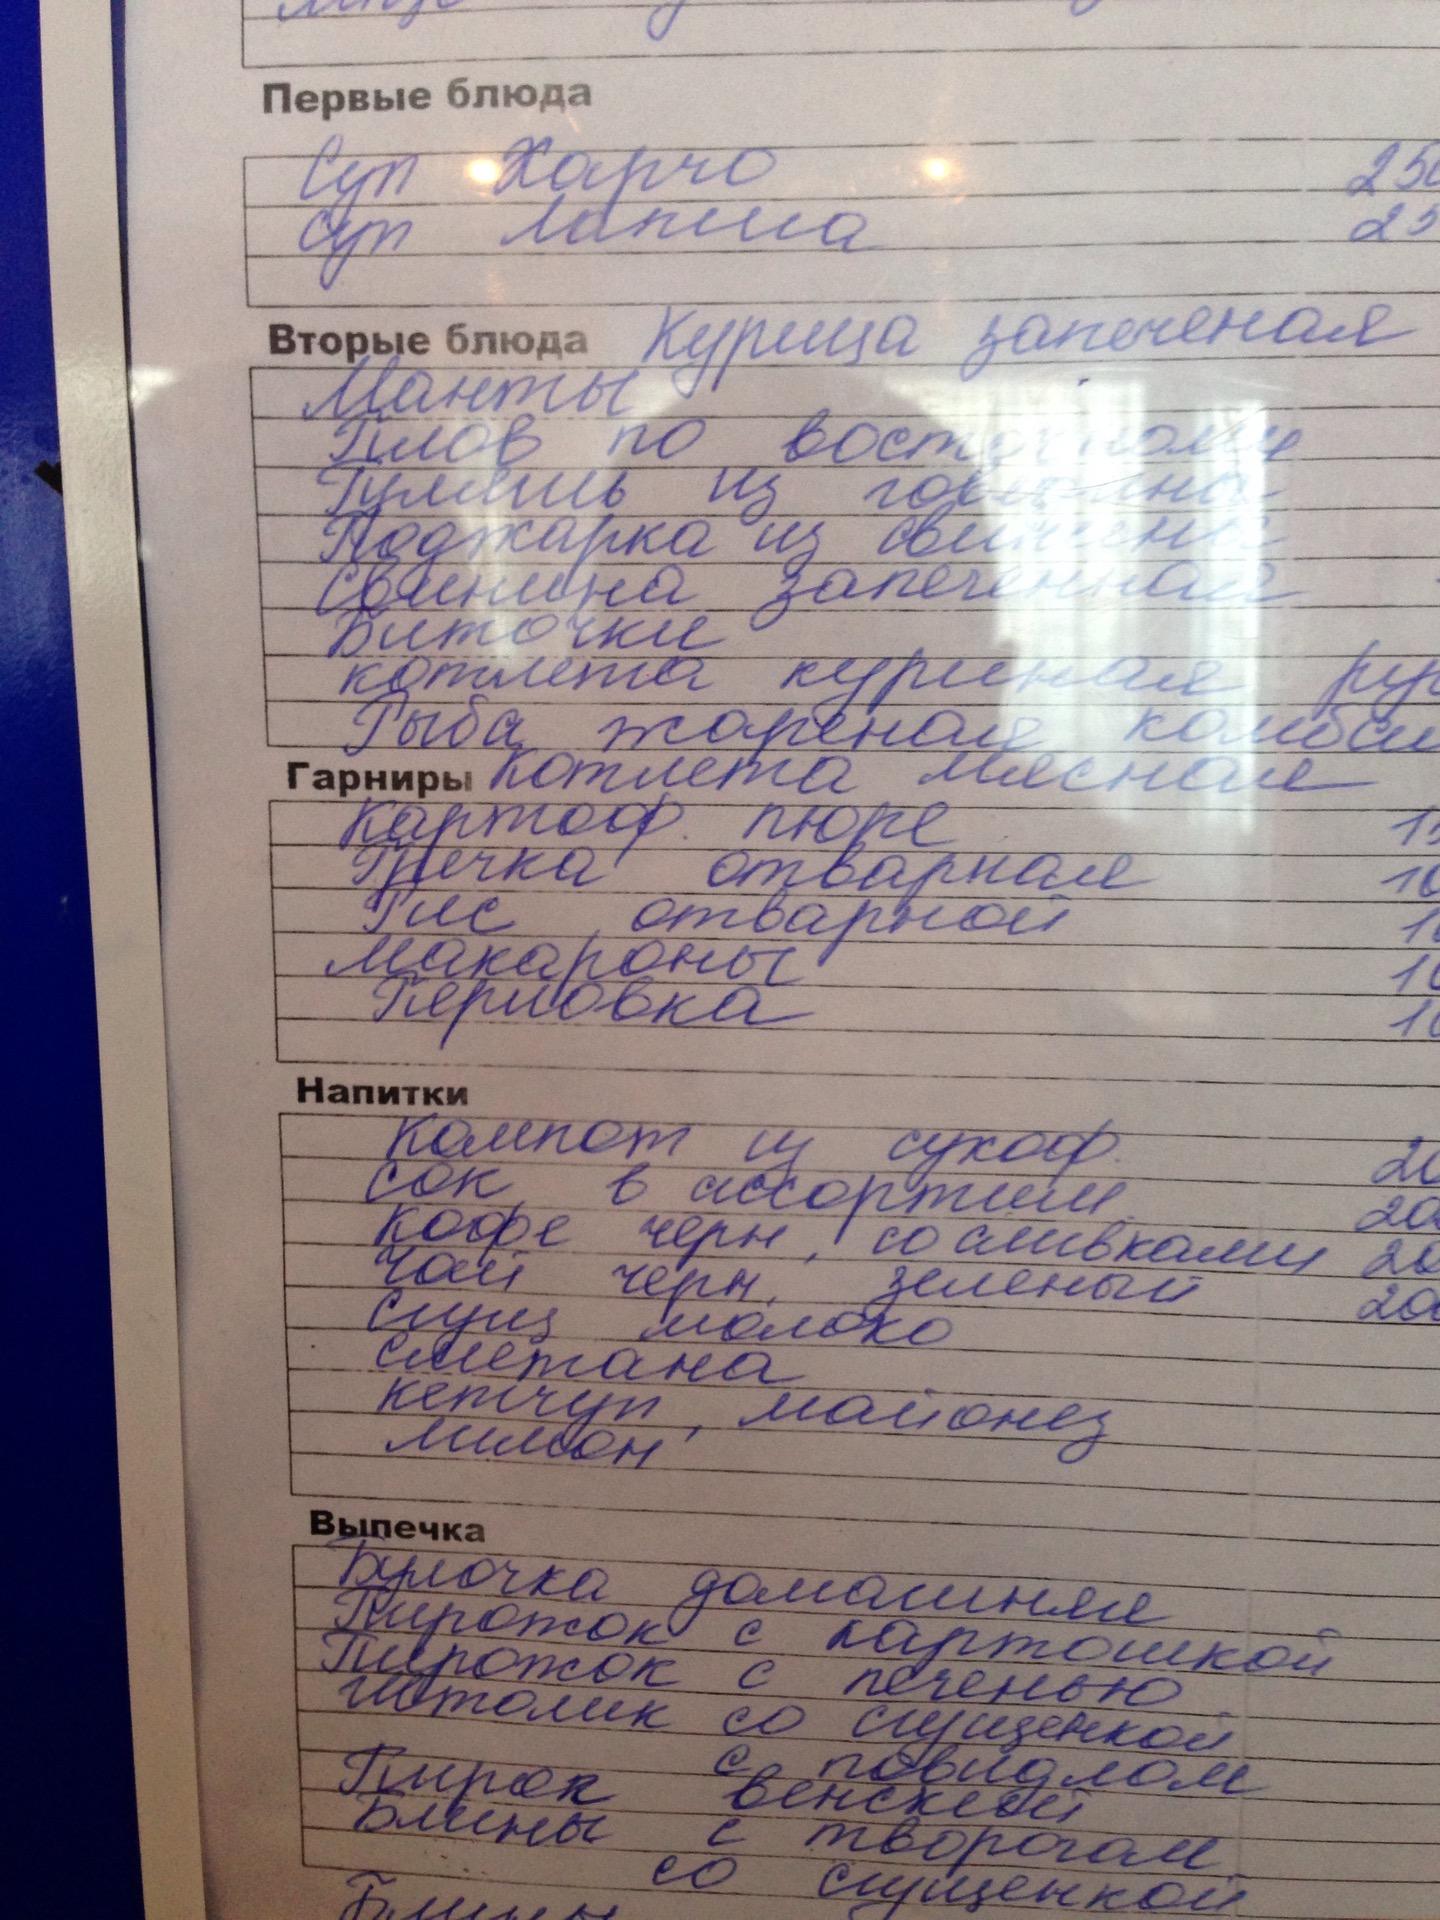 Первые блюда
Суп Харчо 250
Суп Лапша 25
Вторые блюда Курица запеченая
Манты
Плов по восточному
Гуляшь из говядины
Поджарка из свинины
Свинина запеченная
Биточки
котлета куриная ру
Рыба жареная камбал
Гарниры Котлета мясная
Картоф. пюре 15
Гречка отварная 10
Рис отварной 10
Макароны 10
Перловка 10
Напитки
Компот из сухоф. 20
Сок в ассортим. 20
Кофе черн, со сливками 20
Чай черн, зеленый 200
Сгущ молоко
сметана
кетчуп, майонез
лимон
Выпечка
Булочка домашняя
Пирожок с картошкой
Пирожок с печенью
со сгущенкой
с повидлом
Пирог венский
Блины с творогом
со сгущенкой
Блины